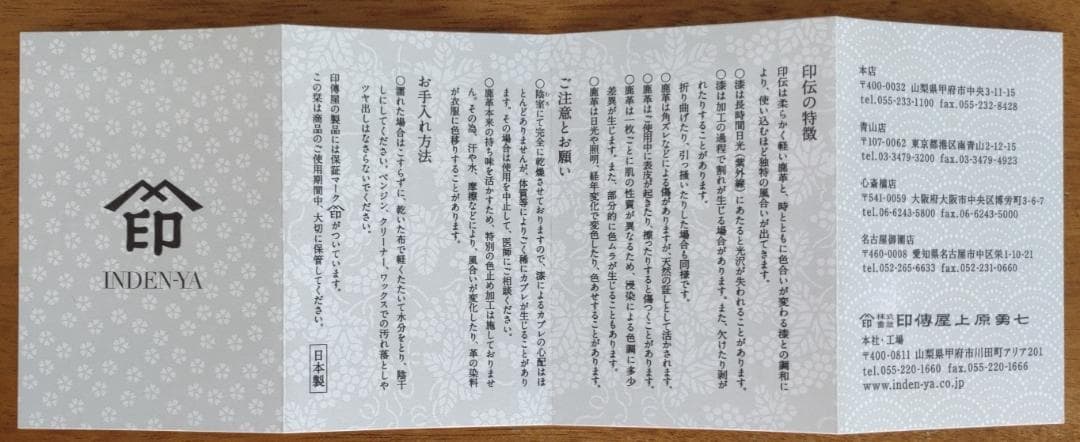 印
INDEN-YA
印伝の特徴
印伝は柔らかく軽い鹿革と、時とともに色合いが変わる漆との調和に
より、使い込むほど独特の風合いが出てきます。
○漆は長時間日光(紫外線)にあたると光沢が失われることがあります。
○漆は加工の過程で割れが生じる場合があります。また、欠けたり剥が
れたりすることがあります。
折り曲げたり、引っ掻いたりした場合も同様です。
○鹿革は角ズレなどによる傷がありますが、天然の証しとして活かされます。
○鹿革はご使用中に表皮が起きたり、擦ったりすると傷つくことがあります。
○鹿革は一枚ごとに肌の性質が異なるため、浸染による色調に多少
差異が生じます。また、部分的に色ムラが生じることもあります。
○鹿革は日光や照明、経年変化で変色したり、色あせすることがあります。
ご注意とお願い
○陰室にて完全に乾燥させておりますので、漆によるカブレの心配はほ
むろ
とんどありませんが、体質等によりごく稀にカブレが生じることがあり
ます。その場合は使用を中止して、医師にご相談ください。
○鹿革本来の持ち味を活かすため、特別の色止め加工は施しておりませ
ん。その為、汗や水、摩擦などにより、風合いが変化したり、革の染料
が衣服に色移りすることがあります。
お手入れ方法
○濡れた場合はこすらずに、乾いた布で軽くたたいて水分をとり、陰干
しにしてください。ベンジン、クリーナー、ワックスでの汚れ落としや
ツヤ出しはなさらないでください。
印傳屋の製品には保証マーク印がついています。
この栞は商品のご使用期間中、大切に保管してください。
日本製
本店
〒400-0032 山梨県甲府市中央3-11-15
tel.055-233-1100 fax.055-232-8428
青山店
〒107-0062 東京都港区南青山2-12-15
tel.03-3479-3200 fax.03-3479-4923
心斎橋店
〒541-0059 大阪府大阪市中央区博労町3-6-7
tel.06-6243-5800 fax.06-6243-5000
名古屋御園店
〒460-0008 愛知県名古屋市中区栄1-10-21
tel.052-265-6633 fax.052-231-0660
印 株式会社 印傳屋上原勇七
本社・工場
〒400-0811 山梨県甲府市川田町アリア201
tel.055-220-1660 fax.055-220-1666
www.inden-ya.co.jp